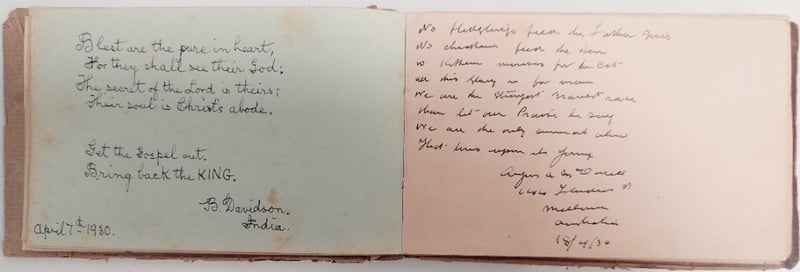 Blest are the pure in heart,
For they shall see their God;
The secret of the Lord is theirs;
Their soul is Christ's abode.
Get the Gospel out.
Bring back the KING.
B. Davidson.
India.
April 7th 1930.
No fledglings feed the Father Birds
No chickens feed the Hen
no Kittens mouses for the Cat
this Glory is for men
We are the strongest Bravest race
then let our Praise be sung
We are the only animal alive
that lives upon its young
Angus a Mc
Flinders St
Melbourne
Australia
18/4/30